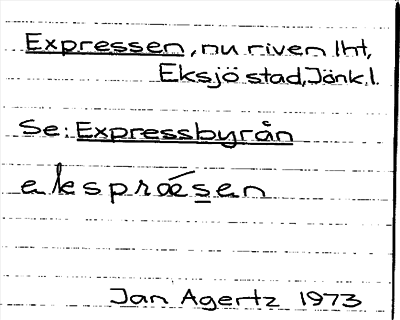 Expressen, nu riven lht,
Eksjö stad, Jönk. l.
Se: Expressbyrån
ekspræ´sen
Jan Agertz 1973